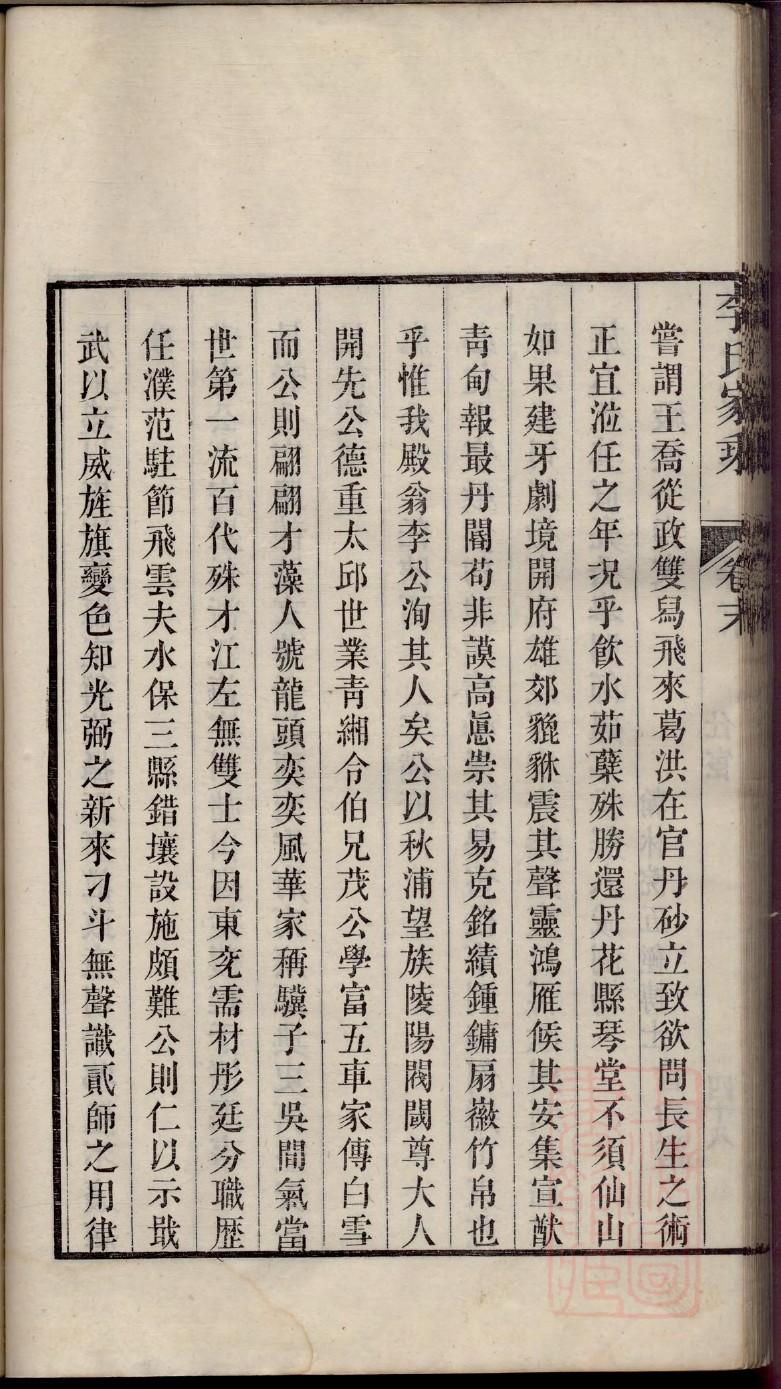 李氏家乘
卷末
嘗謂王喬從政雙舄飛來葛洪在官丹砂立致欲問長生之術
正宜涖任之年況乎飲水茹蘗殊勝還丹花縣琴堂不須仙山
如果建牙劇境開府雄郊貔貅震其聲靈鴻雁俟其安集宣猷
靑甸報最丹閽苟非謨高慝祟其易克銘績鍾鏞扇徽竹帛也
乎惟我殿翁李公洵其人矣公以秋浦望族陵陽閥閱尊大人
開先公德重太邱世業靑緗令伯兄茂公學富五車家傳白雪
而公則翩翩才藻人號龍頭奕奕風華家稱驥子三吳間氣當
世第一流百代殊才江左無雙士今因東兖需材彤廷分職歷
任濮范駐節飛雲夫水保三縣錯壤設施頗難公則仁以示戢
武以立威旌旗變色知光弼之新來刁斗無聲識貳師之用律